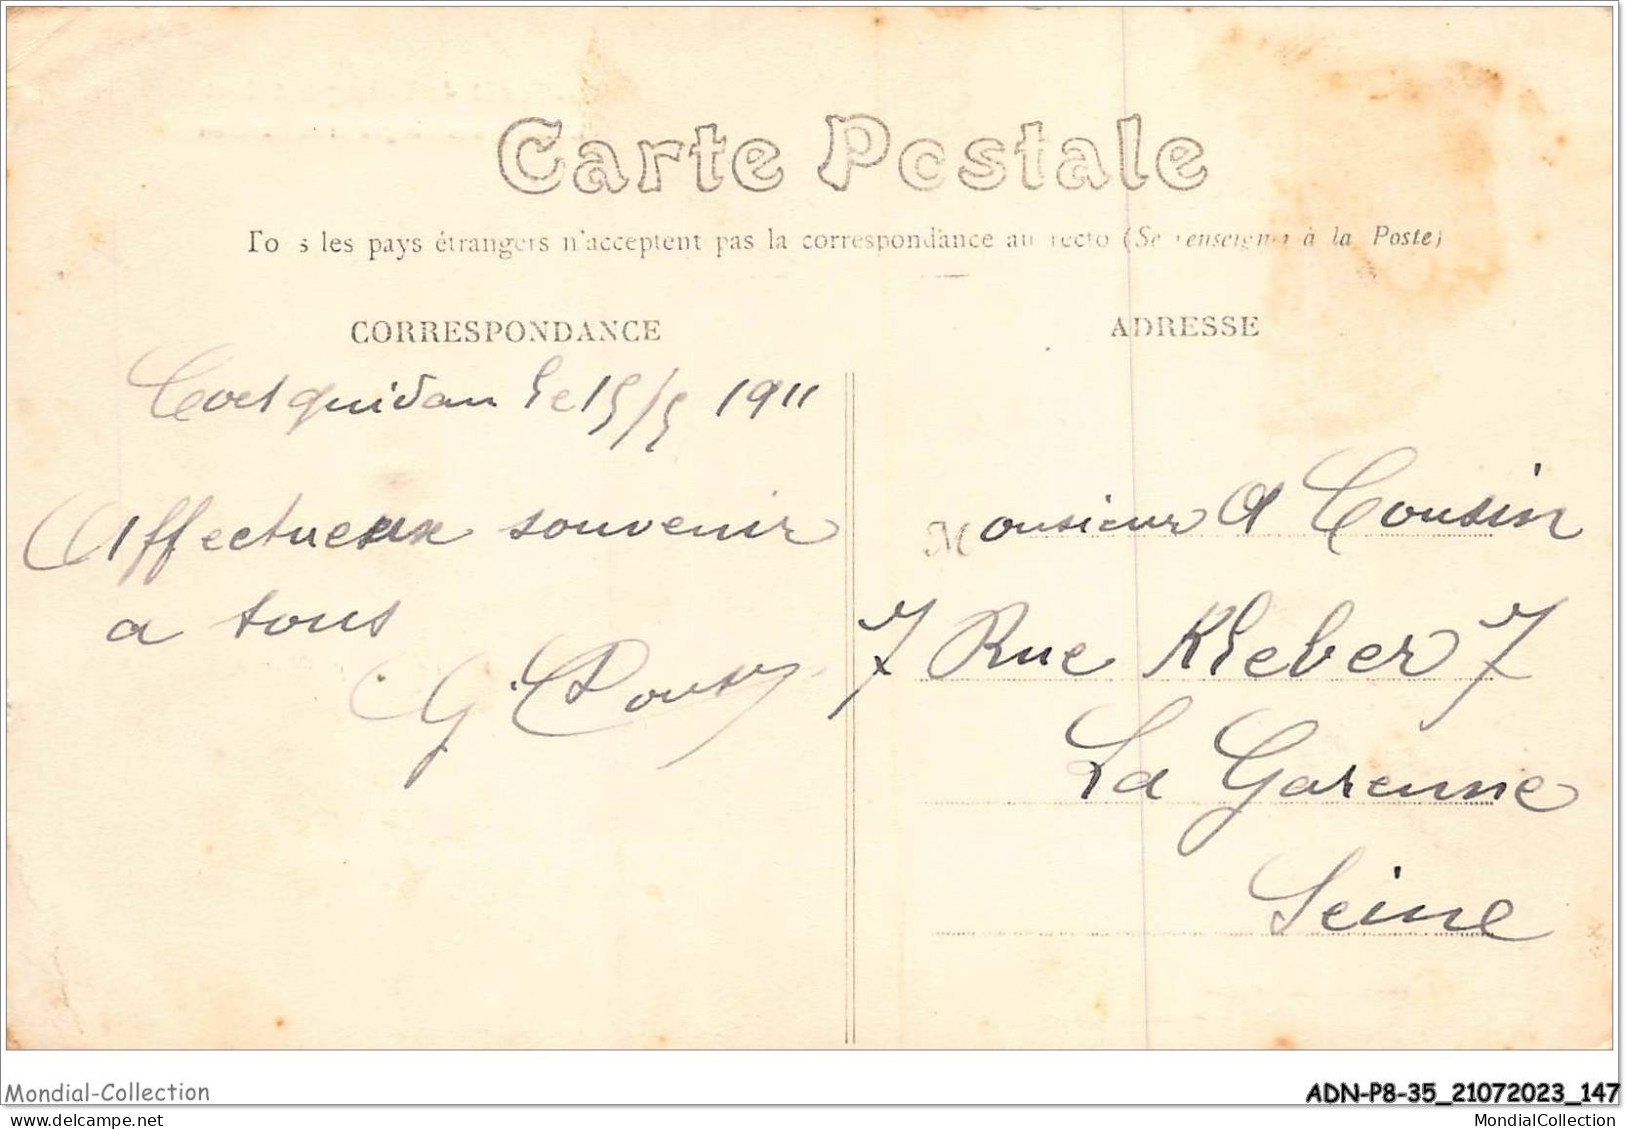 Carte Postale
To s les pays étrangers n'acceptent pas la correspondance au recto (Se renseigner à la Poste)
CORRESPONDANCE
Coetquidan le 15/5 1911
Affectueux souvenir
a tous
G.
ADRESSE
Monsieur A Cousin
7 Rue Kleber 7
La Garenne
Seine
Mondial-Collection
ADN-P8-35_21072023_147
MondialCollection